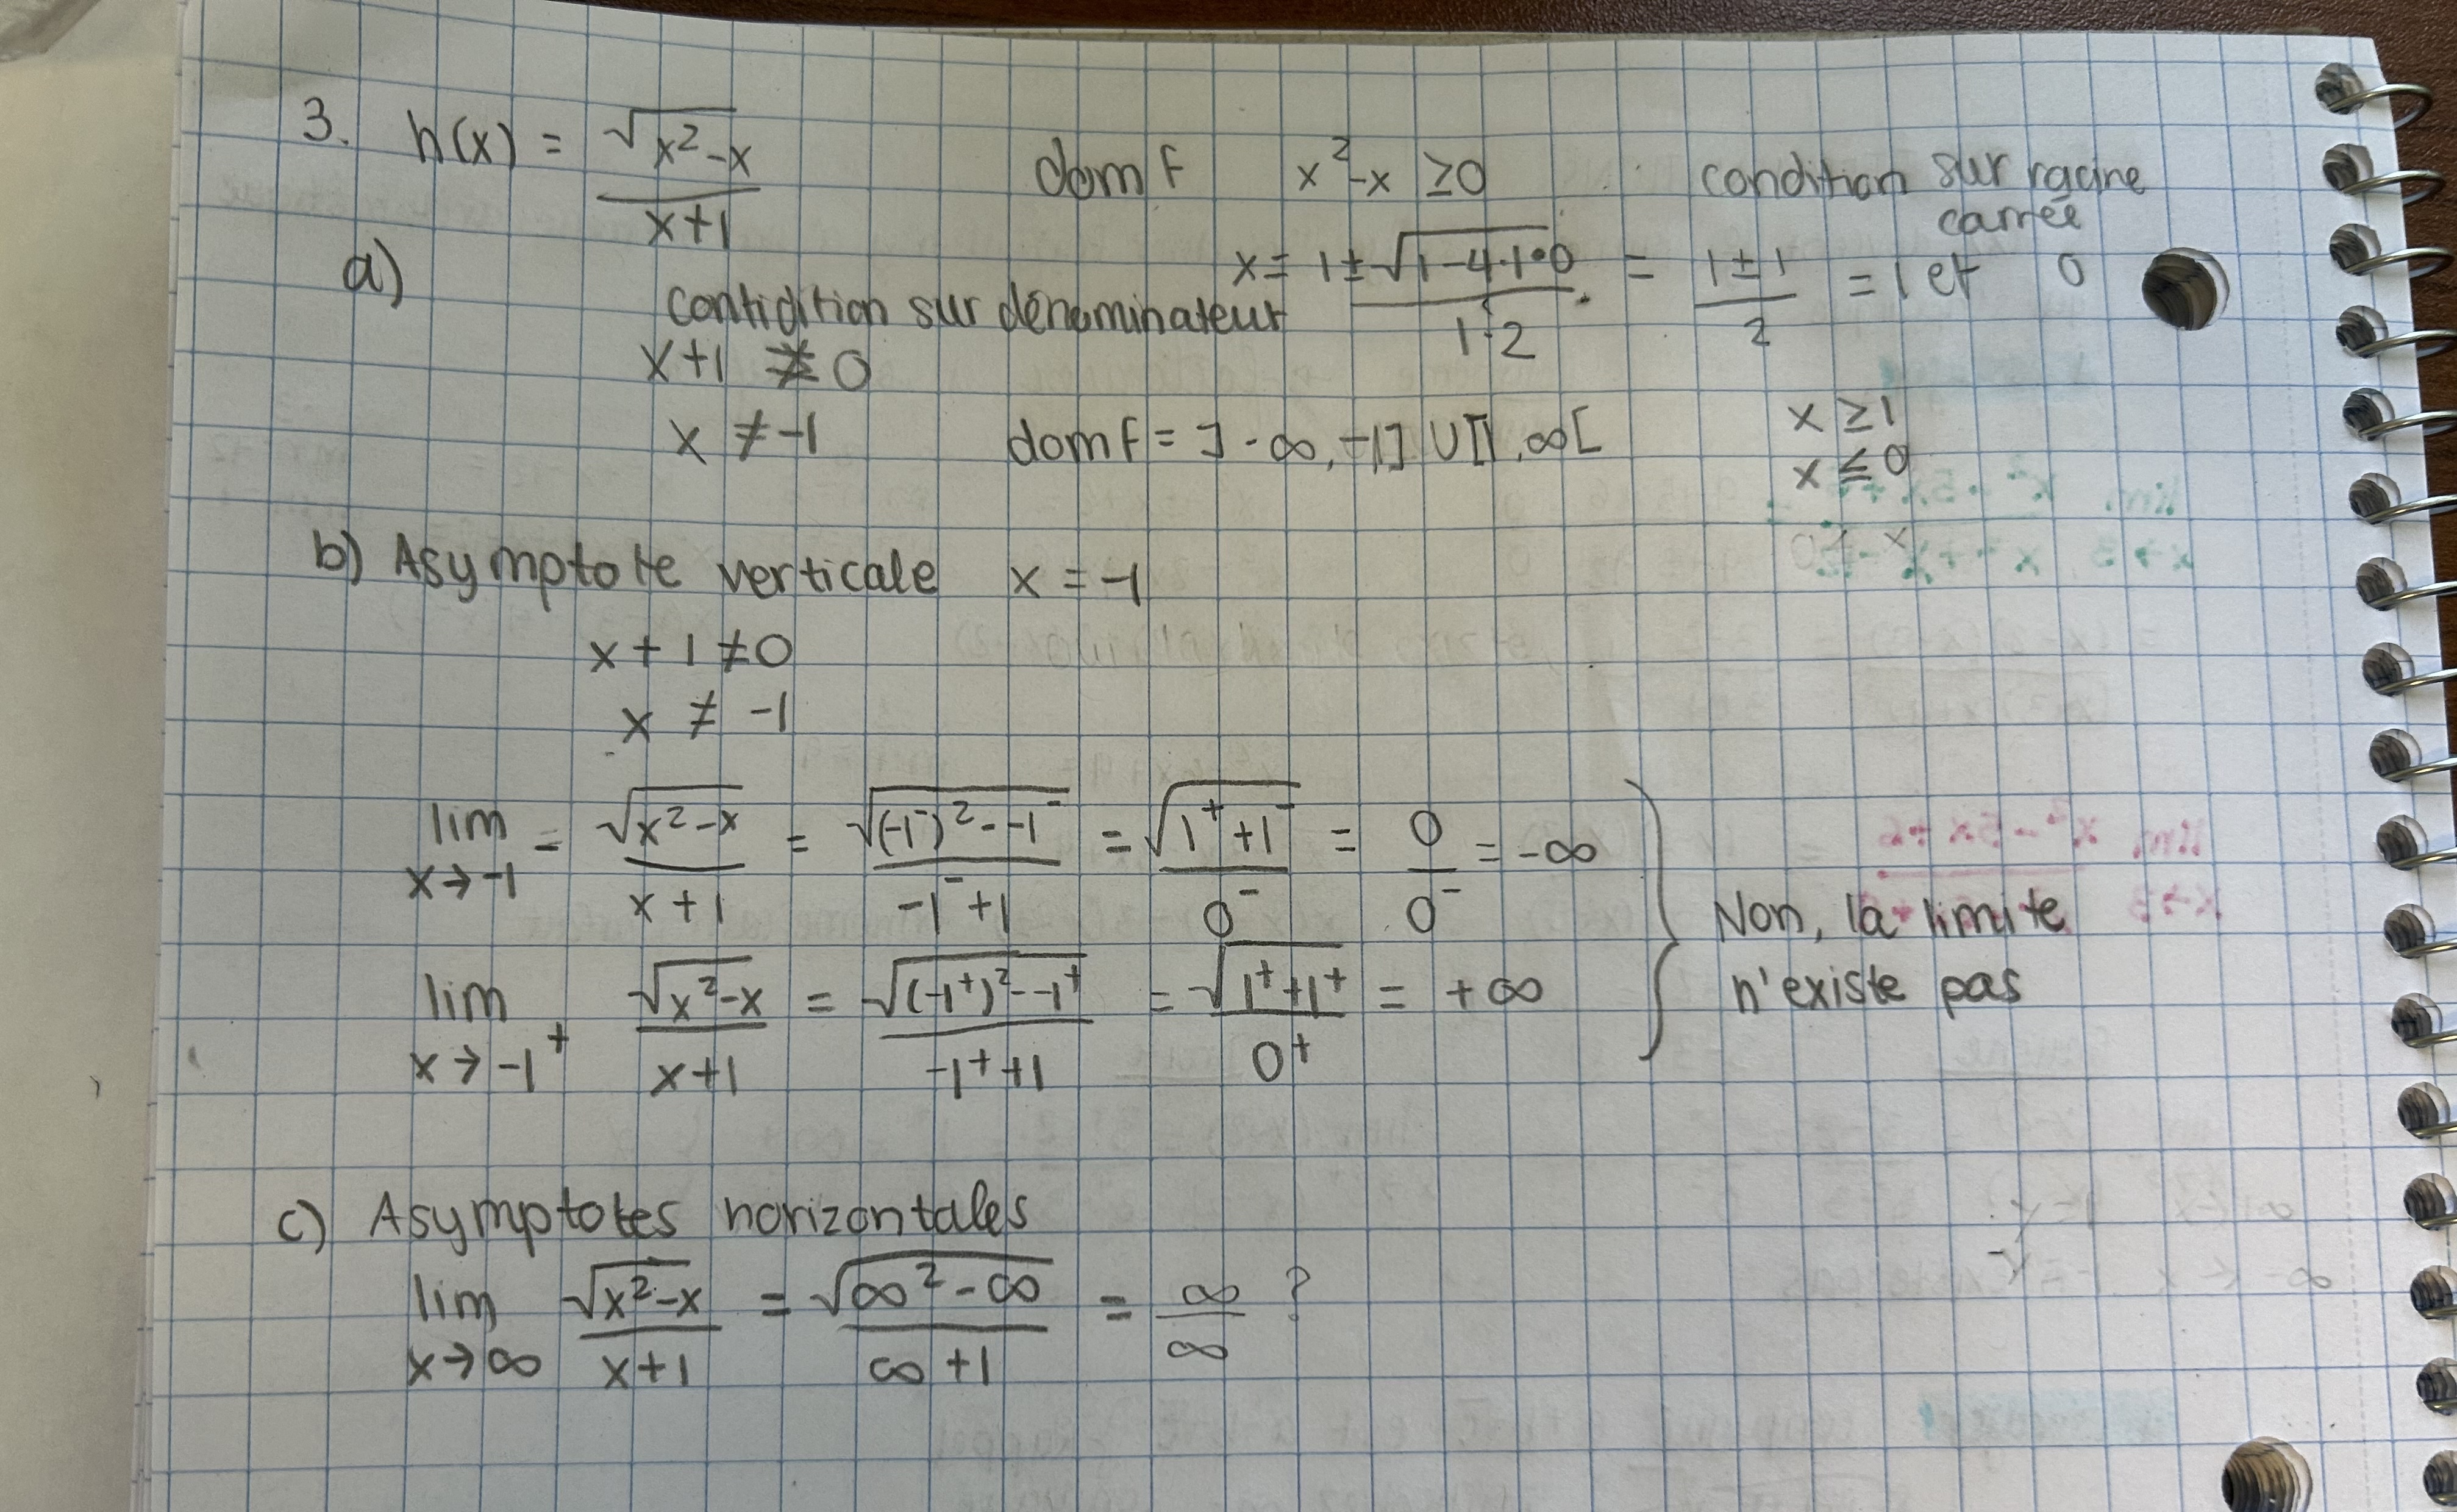 3. h(x) = √(x²-x) / (x+1)    dom f    x²-x ≥0    condition sur racine carrée
a)    x = (1±√(1-4·1·0)) / (1·2) = (1±1)/2 = 1 et 0
contidition sur dénominateur
x+1 ≠ 0
x ≠ -1    dom f = ]-∞, -1] U [1, ∞[    x ≥ 1
x ≤ 0
b) Asymptote verticale    x = -1
x + 1 ≠ 0
x ≠ -1
lim x→-1 = √(x²-x) / (x+1) = √((-1⁻)² - -1⁻) / (-1⁻+1) = √(1⁺+1⁻) / 0⁻ = 0/0⁻ = -∞
lim x→-1⁺ √(x²-x) / (x+1) = √((-1⁺)² - -1⁺) / (-1⁺+1) = √(1⁺+1⁺) / 0⁺ = +∞
Non, la limite
n'existe pas
c) Asymptotes horizontales
lim x→∞ √(x²-x) / (x+1) = √(∞²-∞) / (∞+1) = ∞/∞ ?